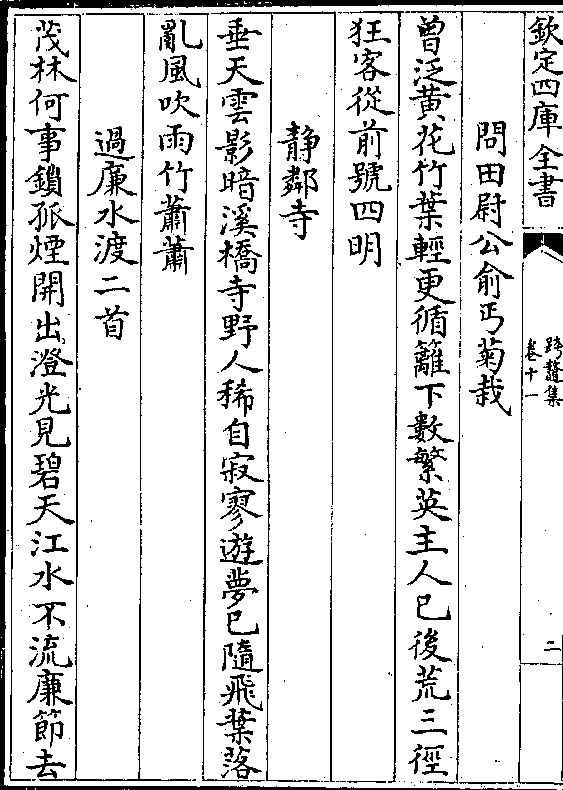 欽定四庫全書
跨鼇集
卷十一
二
問田尉公俞丐菊栽
曾泛黄花竹葉輕更循籬下數繁英主人已後荒三徑
狂客從前號四明
静鄰寺
垂天雲影暗溪橋寺野人稀自寂寥遊夢已隨飛葉落
亂風吹雨竹蕭蕭
過廉水渡二首
茂林何事鎖孤煙開出澄光見碧天江水不流廉節去